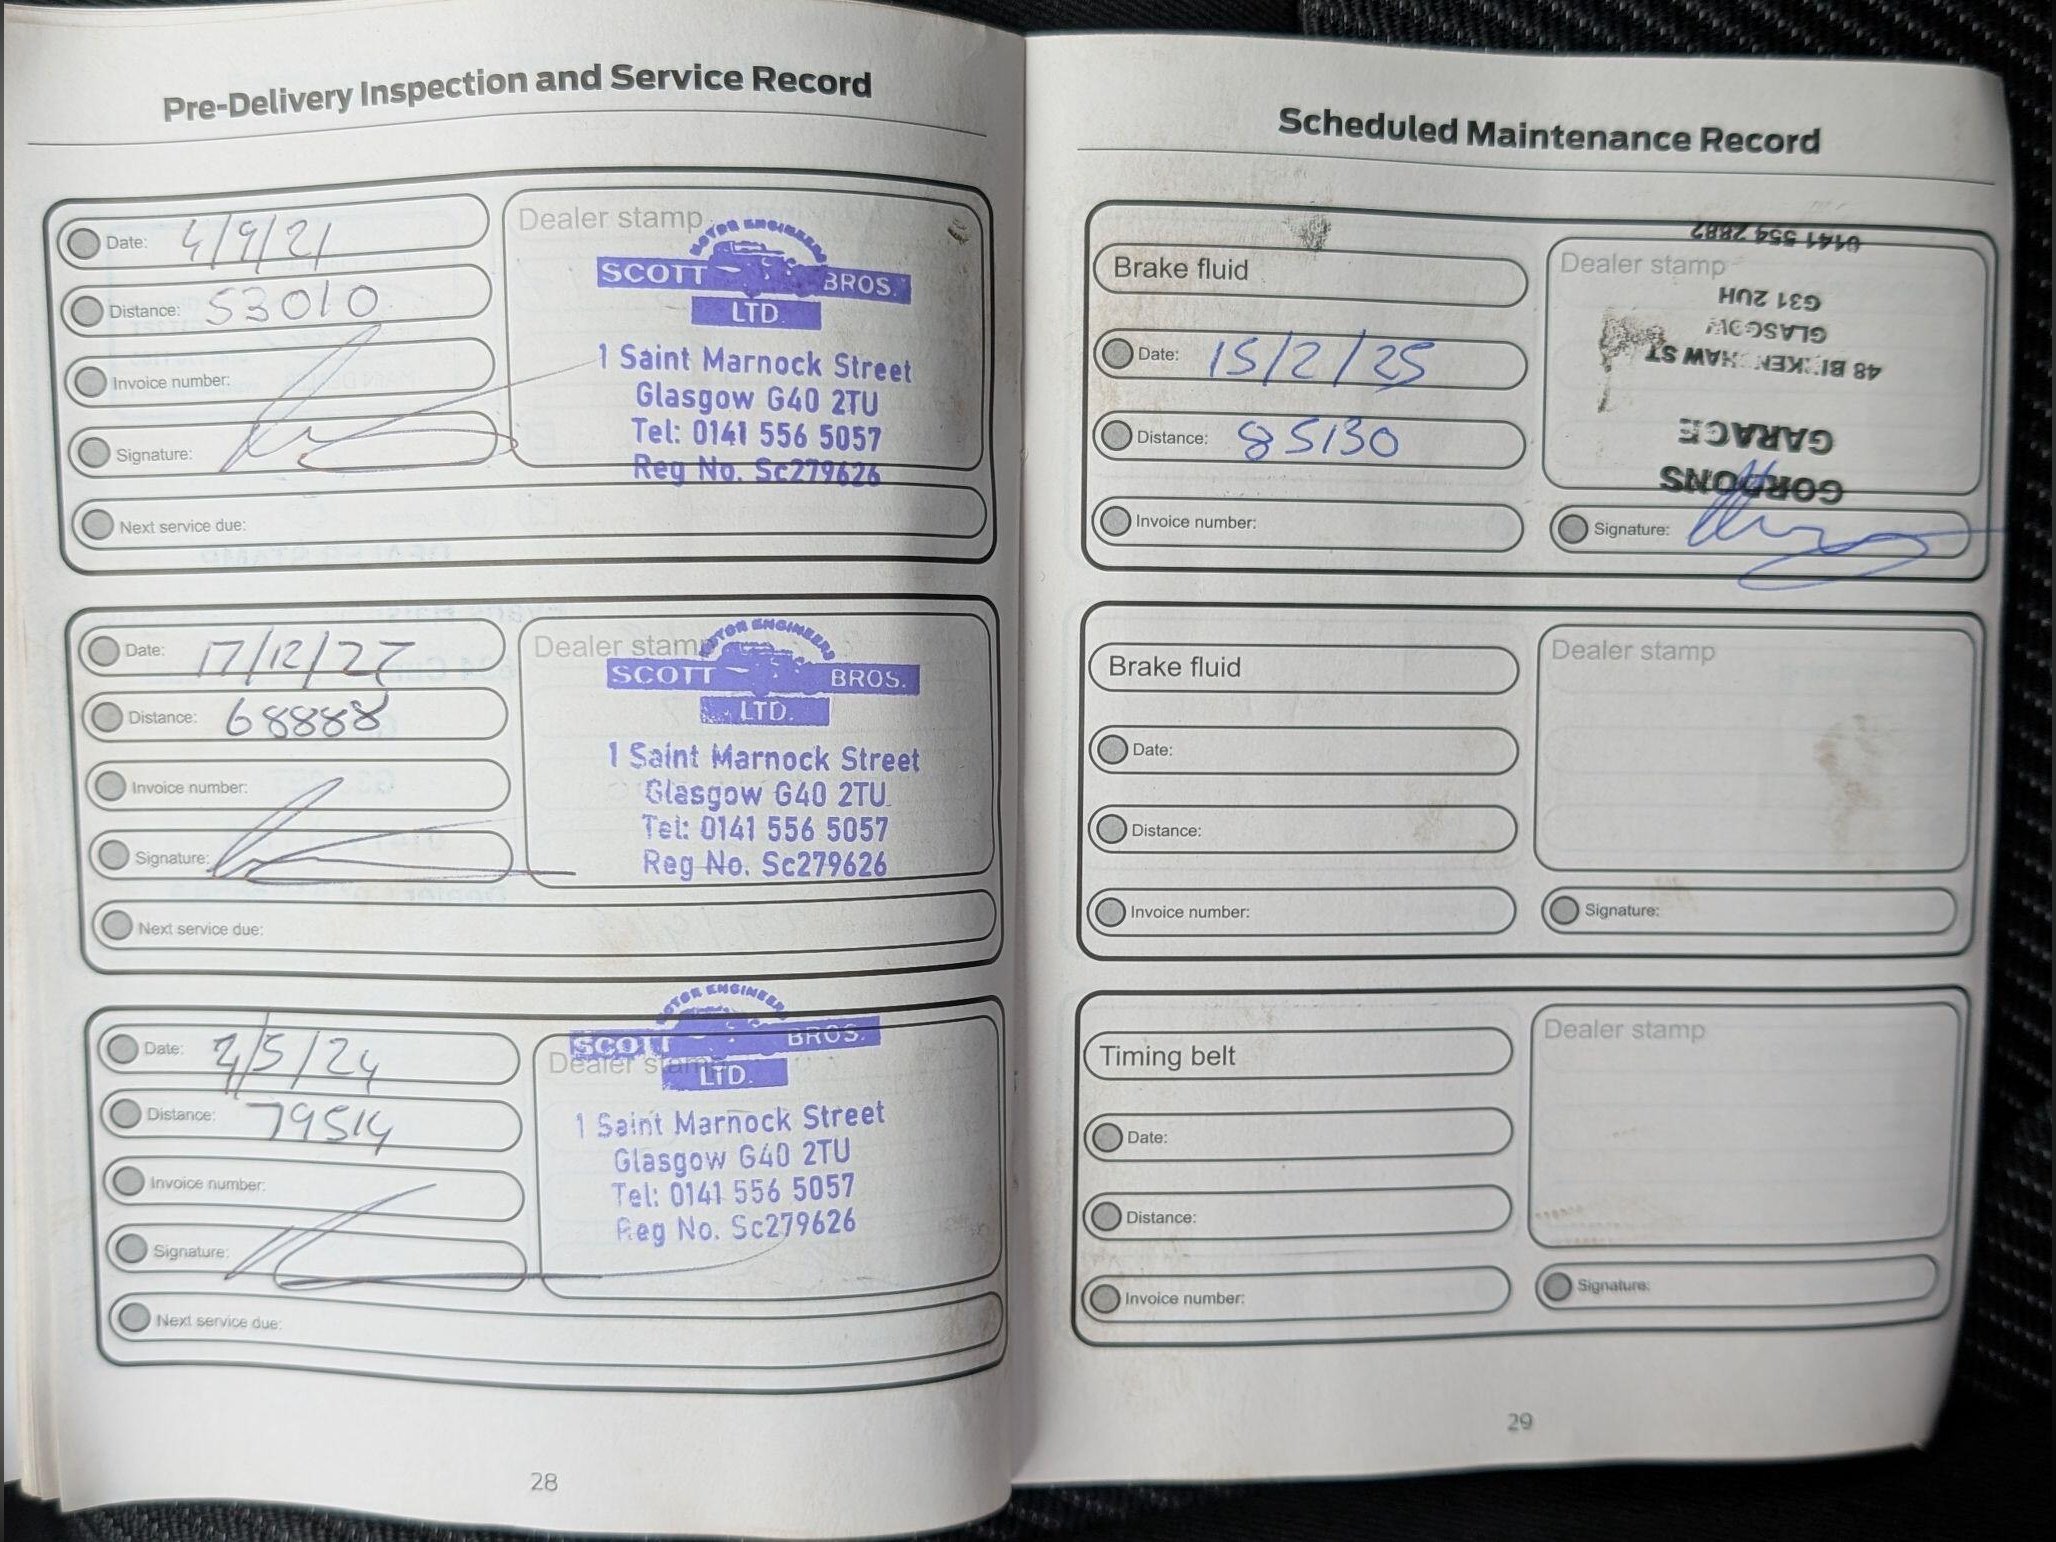 Pre-Delivery Inspection and Service Record
Date: 4/9/21
Distance: 53010
Invoice number:
Signature:
Next service due:
Dealer stamp
MOTOR ENGINEERS
SCOTT BROS.
LTD.
1 Saint Marnock Street
Glasgow G40 2TU
Tel: 0141 556 5057
Reg No. Sc279626
Date: 17/12/22
Distance: 68888
Invoice number:
Signature:
Next service due:
Dealer stamp
MOTOR ENGINEERS
SCOTT BROS.
LTD.
1 Saint Marnock Street
Glasgow G40 2TU
Tel: 0141 556 5057
Reg No. Sc279626
Date: 2/5/24
Distance: 79514
Invoice number:
Signature:
Next service due:
Dealer stamp
MOTOR ENGINEERS
SCOTT BROS.
LTD.
1 Saint Marnock Street
Glasgow G40 2TU
Tel: 0141 556 5057
Reg No. Sc279626
28
Scheduled Maintenance Record
Brake fluid
Date: 15/2/25
Distance: 85130
Invoice number:
Dealer stamp
GORDONS
GARAGE
48 ST
GLASGOW
G31 2UH
0141 554 2882
Signature:
Brake fluid
Date:
Distance:
Invoice number:
Dealer stamp
Signature:
Timing belt
Date:
Distance:
Invoice number:
Dealer stamp
Signature:
29